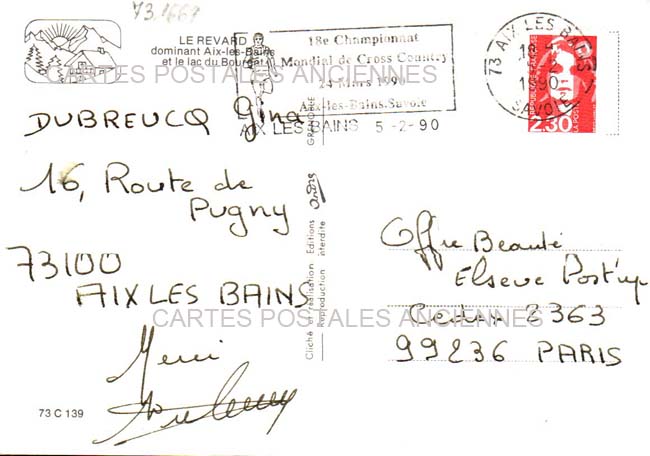 73.1667
LE REVARD
dominant Aix-les-Bains
et le lac du Bourget
18e Championnat
Mondial de Cross Country
24 Mars 1990
Aix-les-Bains.Savoie
AIX LES BAINS 5-2-90
73 AIX LES BAINS
18 H
5-2
1990
SAVOIE
2,30
LA POSTE
CARTES POSTALES ANCIENNES
DUBREUCQ Gina
16, Route de
Pugny
73100
AIX LES BAINS
Merci
73 C 139
GRENOBLE
Cliché et réalisation Editions
Reproduction interdite
Offre Beauté
Elseve Post'up
Cedex 2363
99236 PARIS
CARTES POSTALES ANCIENNES